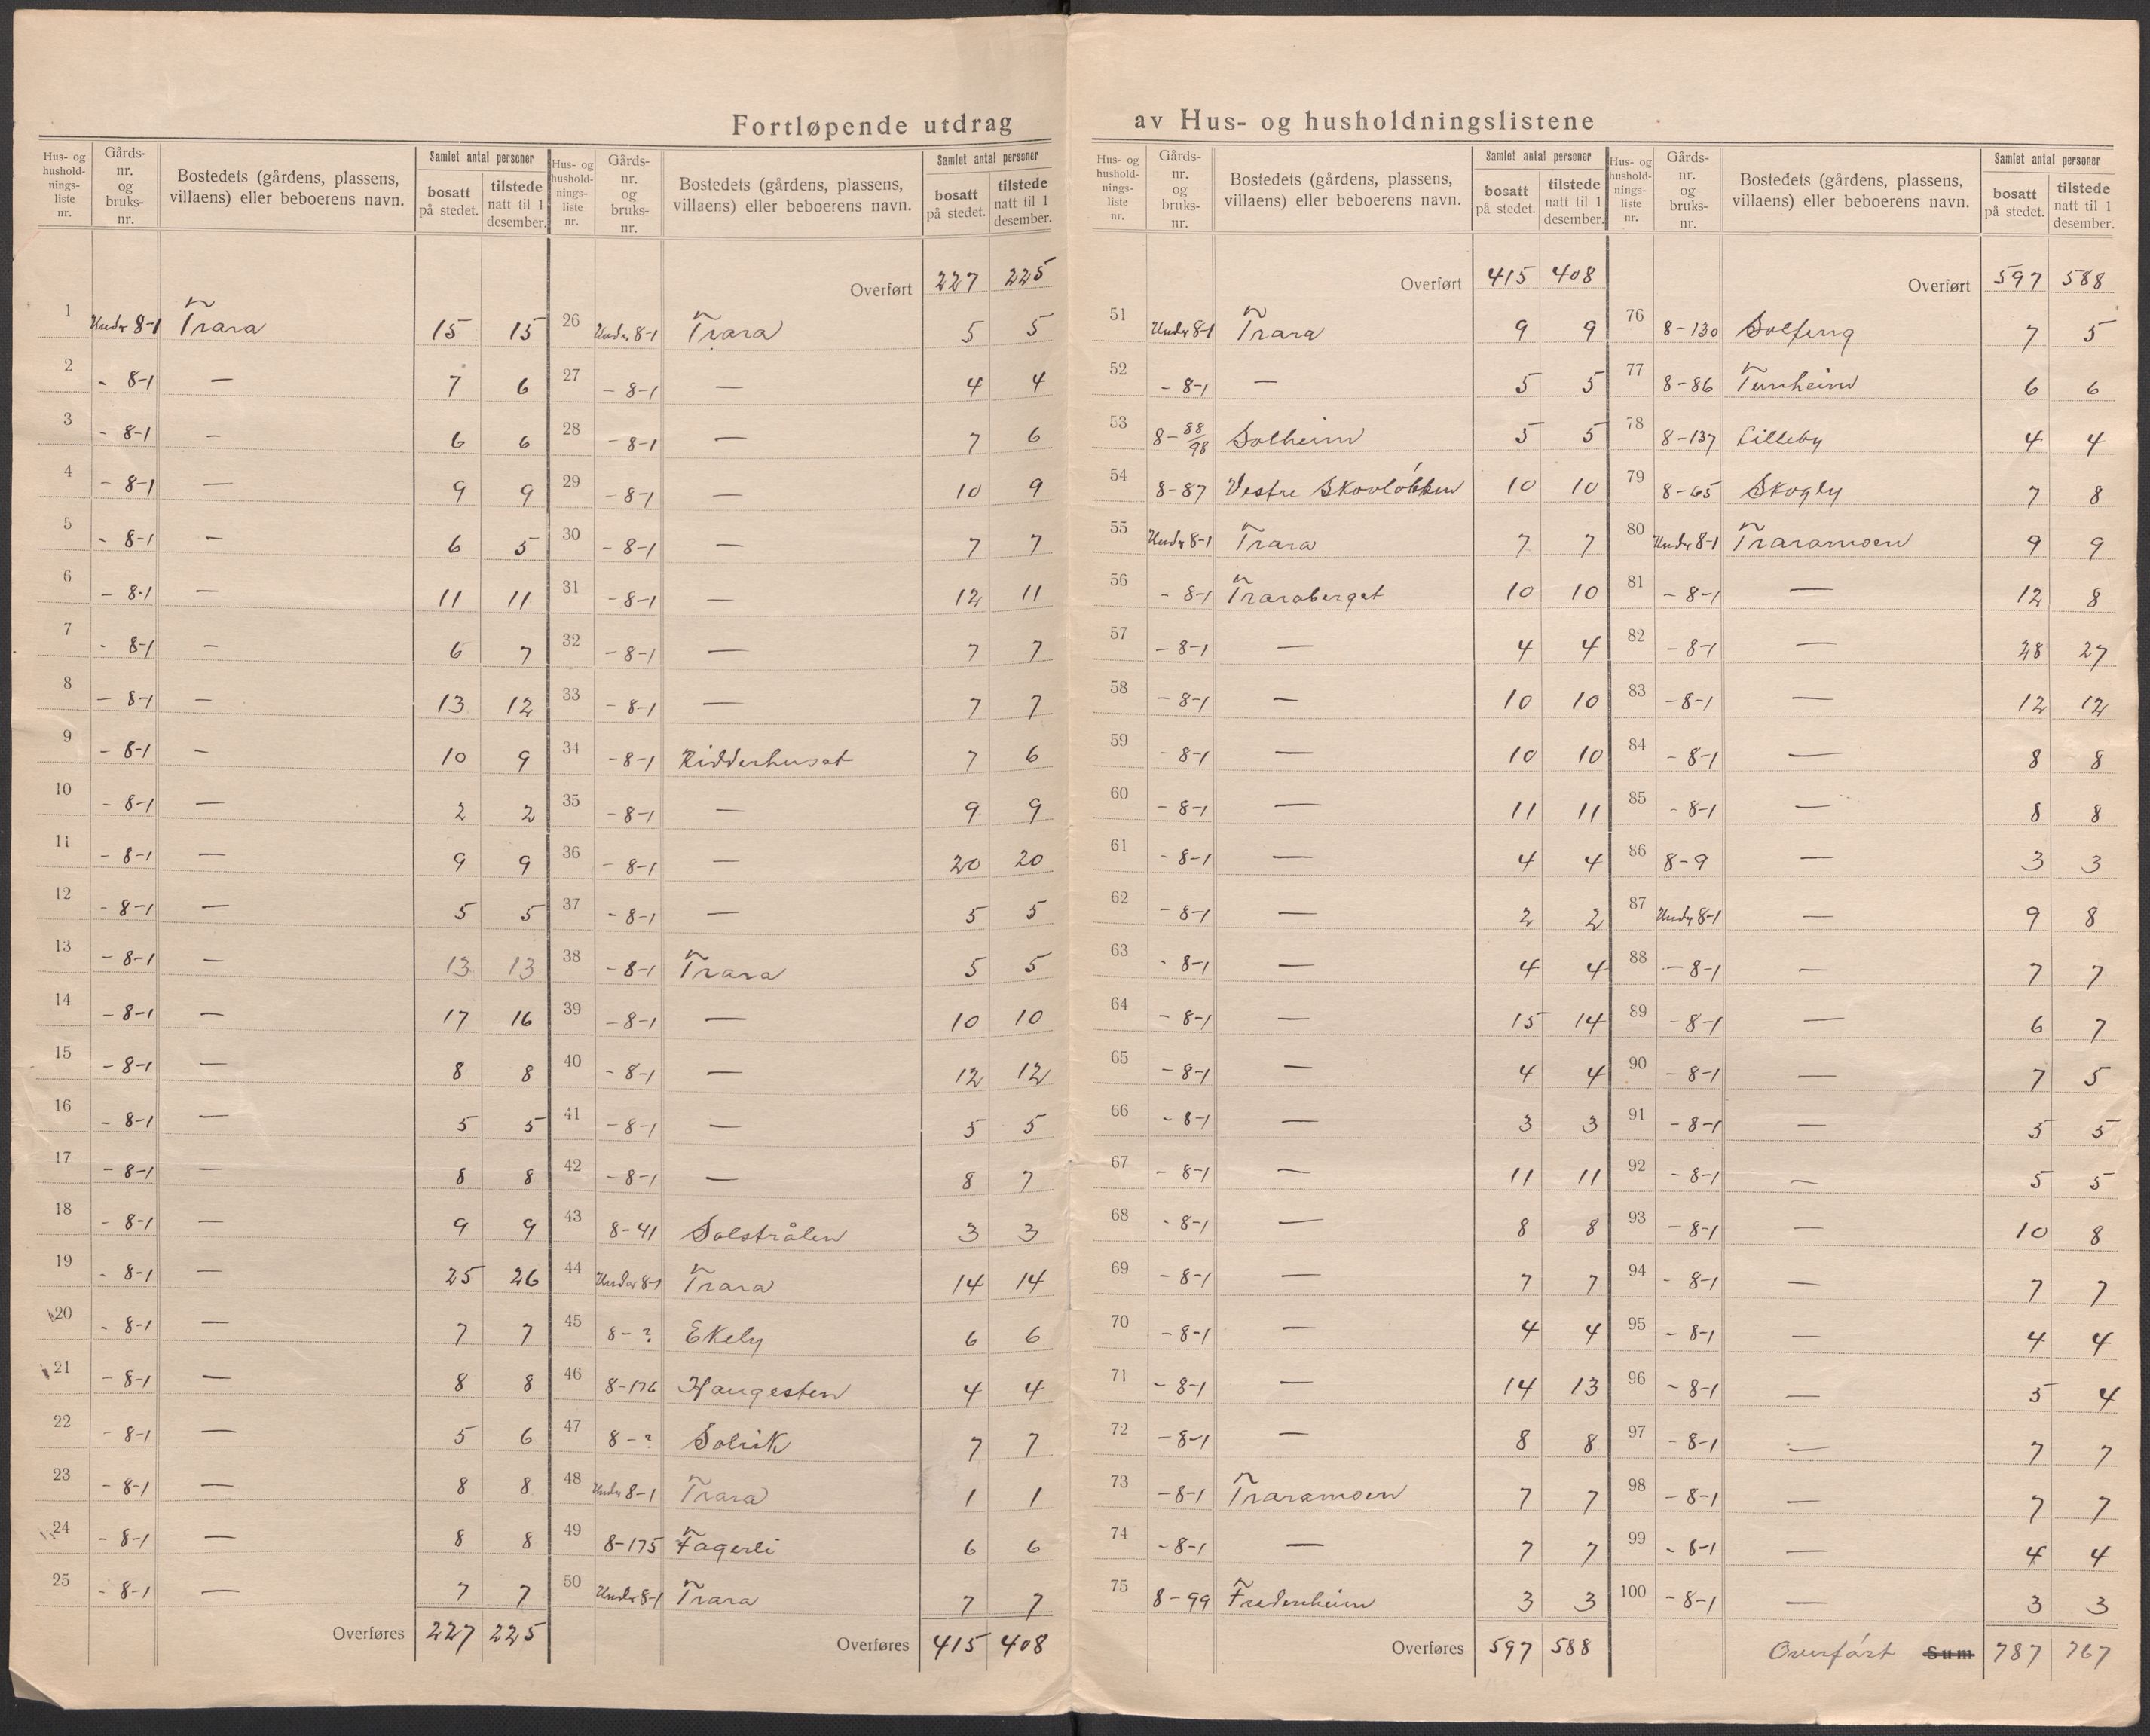 Fortløpende utdrag av Hus- og husholdningslistene
Hus- og hushold-nings-liste nr. | Gårds-nr. og bruks-nr. | Bostedets (gårdens, plassens, villaens) eller beboerens navn. | Samlet antal personer bosatt på stedet. | tilstede natt til 1 desember.
1 Under 8-1 Trara 15 15
2 - 8-1 — 7 6
3 - 8-1 — 6 6
4 - 8-1 — 9 9
5 - 8-1 — 6 5
6 - 8-1 — 11 11
7 - 8-1 — 6 7
8 - 8-1 — 13 12
9 - 8-1 — 10 9
10 - 8-1 — 2 2
11 - 8-1 — 9 9
12 - 8-1 — 5 5
13 - 8-1 — 13 13
14 - 8-1 — 17 16
15 - 8-1 — 8 8
16 - 8-1 — 5 5
17 - 8-1 — 8 8
18 - 8-1 — 9 9
19 - 8-1 — 25 26
20 - 8-1 — 7 7
21 - 8-1 — 8 8
22 - 8-1 — 5 6
23 - 8-1 — 8 8
24 - 8-1 — 8 8
25 - 8-1 — 7 7
Overføres 227 225
Hus- og hushold-nings-liste nr. | Gårds-nr. og bruks-nr. | Bostedets (gårdens, plassens, villaens) eller beboerens navn. | Samlet antal personer bosatt på stedet. | tilstede natt til 1 desember.
Overført 227 225
26 Under 8-1 Trara 5 5
27 - 8-1 — 4 4
28 - 8-1 — 7 6
29 - 8-1 — 10 9
30 - 8-1 — 7 7
31 - 8-1 — 12 11
32 - 8-1 — 7 7
33 - 8-1 — 7 7
34 - 8-1 Ridderhuset 7 6
35 - 8-1 — 9 9
36 - 8-1 — 20 20
37 - 8-1 — 5 5
38 - 8-1 Trara 5 5
39 - 8-1 — 10 10
40 - 8-1 — 12 12
41 - 8-1 — 5 5
42 - 8-1 — 8 7
43 8-41 Solstrålen 3 3
44 Under 8-1 Trara 14 14
45 8-? Ekely 6 6
46 8-176 Haugesten 4 4
47 8-? Solvik 7 7
48 Under 8-1 Trara 1 1
49 8-175 Fagerli 6 6
50 Under 8-1 Trara 7 7
Overføres 415 408
Hus- og hushold-nings-liste nr. | Gårds-nr. og bruks-nr. | Bostedets (gårdens, plassens, villaens) eller beboerens navn. | Samlet antal personer bosatt på stedet. | tilstede natt til 1 desember.
Overført 415 408
51 Under 8-1 Trara 9 9
52 - 8-1 — 5 5
53 8-88/98 Solheim 5 5
54 8-87 Vestre Skovløkken 10 10
55 Under 8-1 Trara 7 7
56 - 8-1 Traraberget 10 10
57 - 8-1 — 4 4
58 - 8-1 — 10 10
59 - 8-1 — 10 10
60 - 8-1 — 11 11
61 - 8-1 — 4 4
62 - 8-1 — 2 2
63 - 8-1 — 4 4
64 - 8-1 — 15 14
65 - 8-1 — 4 4
66 - 8-1 — 3 3
67 - 8-1 — 11 11
68 - 8-1 — 8 8
69 - 8-1 — 7 7
70 - 8-1 — 4 4
71 - 8-1 — 14 13
72 - 8-1 — 8 8
73 - 8-1 Traramoen 7 7
74 - 8-1 — 7 7
75 8-99 Fredenheim 3 3
Overføres 597 588
Hus- og hushold-nings-liste nr. | Gårds-nr. og bruks-nr. | Bostedets (gårdens, plassens, villaens) eller beboerens navn. | Samlet antal personer bosatt på stedet. | tilstede natt til 1 desember.
Overført 597 588
76 8-130 Solfeng 7 5
77 8-86 6 6
78 8-137 Lilleby 4 4
79 8-65 Skogly 7 8
80 Under 8-1 Traramoen 9 9
81 - 8-1 — 12 8
82 - 8-1 — 28 27
83 - 8-1 — 12 12
84 - 8-1 — 8 8
85 - 8-1 — 8 8
86 8-9 — 3 3
87 Under 8-1 — 9 8
88 - 8-1 — 7 7
89 - 8-1 — 6 7
90 - 8-1 — 7 5
91 - 8-1 — 5 5
92 - 8-1 — 5 5
93 - 8-1 — 10 8
94 - 8-1 — 7 7
95 - 8-1 — 4 4
96 - 8-1 — 5 4
97 - 8-1 — 7 7
98 - 8-1 — 7 7
99 - 8-1 — 4 4
100 - 8-1 — 3 3
Overført Sum 787 767